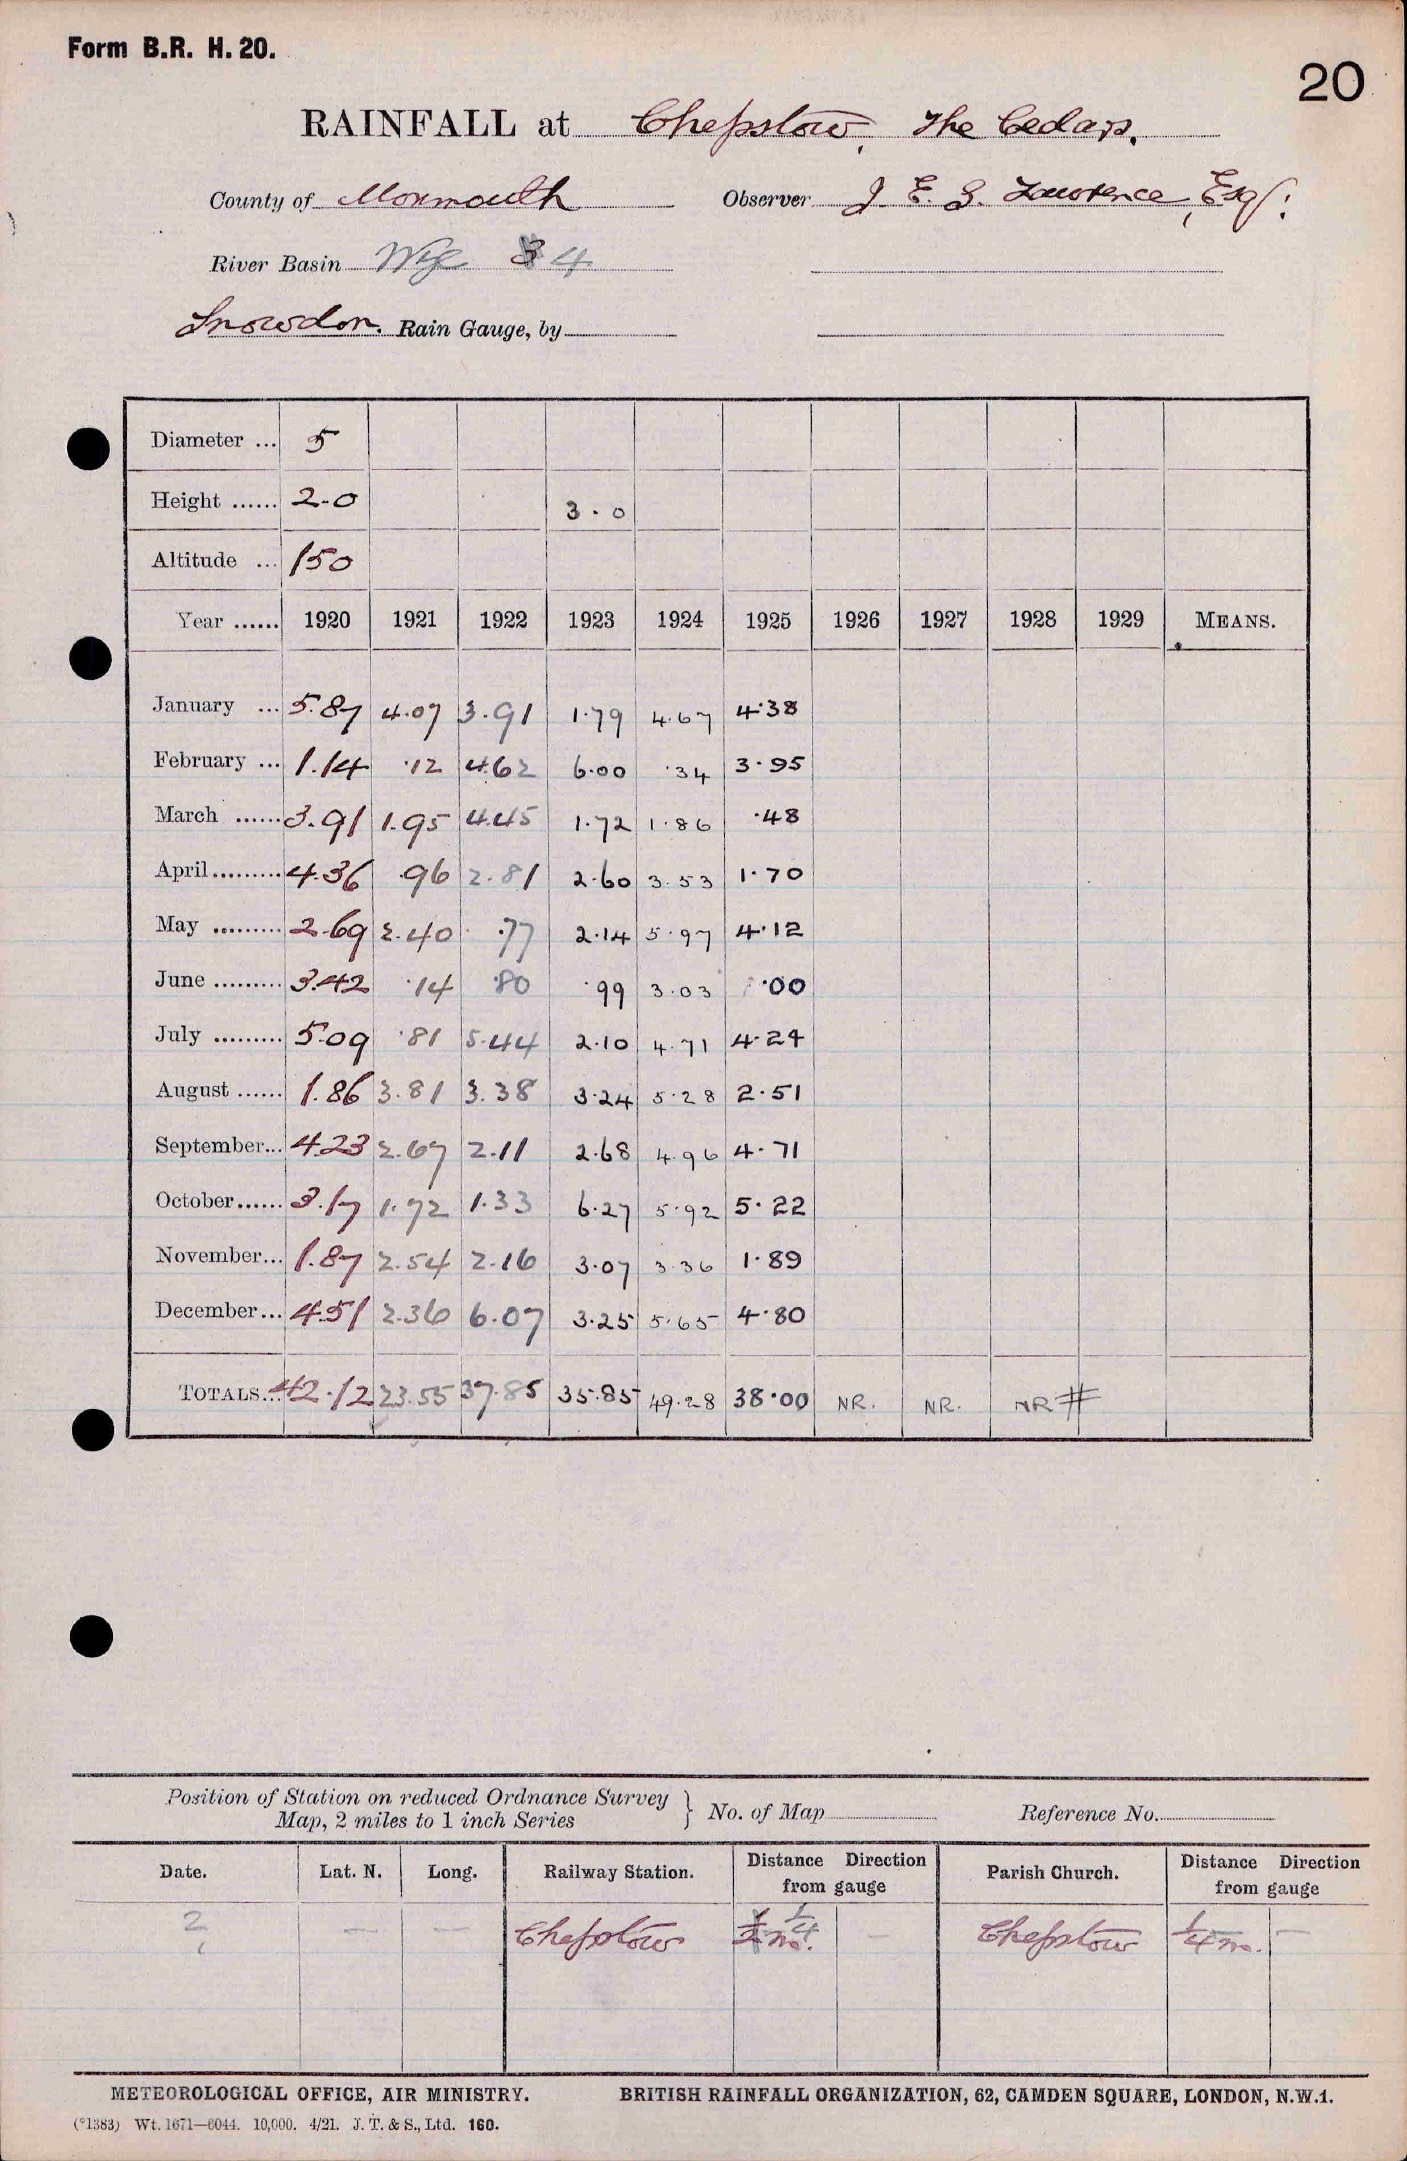 Form B.R. H. 20.
20
RAINFALL at Chepstow, The Cedars.
County of Monmouth Observer J. E. S. Lawrence, Esq:
River Basin Wye 4
Snowdon. Rain Gauge, by
Diameter ... 5
Height ...... 2-0 3.0
Altitude ... 150
Year ...... 1920 1921 1922 1923 1924 1925 1926 1927 1928 1929 MEANS.
January ... 5.87 4.07 3.91 1.79 4.67 4.38
February ... 1.14 .12 4.62 6.00 .34 3.95
March ...... 3.91 1.95 4.45 1.72 1.86 .48
April......... 4.36 .96 2.81 2.60 3.53 1.70
May ......... 2.69 2.40 .77 2.14 5.97 4.12
June ......... 3.42 .14 .80 .99 3.03 .00
July ......... 5.09 .81 5.44 2.10 4.71 4.24
August ...... 1.86 3.81 3.38 3.24 5.28 2.51
September... 4.23 2.67 2.11 2.68 4.96 4.71
October...... 3.17 1.72 1.33 6.27 5.92 5.22
November... 1.87 2.54 2.16 3.07 3.36 1.89
December... 4.51 2.36 6.07 3.25 5.65 4.80
TOTALS... 42.12 23.55 37.85 35.85 49.28 38.00 NR. NR. NR #
Position of Station on reduced Ordnance Survey
Map, 2 miles to 1 inch Series } No. of Map Reference No.
Date. Lat. N. Long. Railway Station. Distance Direction from gauge Parish Church. Distance Direction from gauge
2 — — Chepstow 1/2 1/4 m. — Chepstow 1/4 m. —
METEOROLOGICAL OFFICE, AIR MINISTRY. BRITISH RAINFALL ORGANIZATION, 62, CAMDEN SQUARE, LONDON, N.W.1.
(*1383) Wt. 1671—6044. 10,000. 4/21. J. T. & S., Ltd. 160.